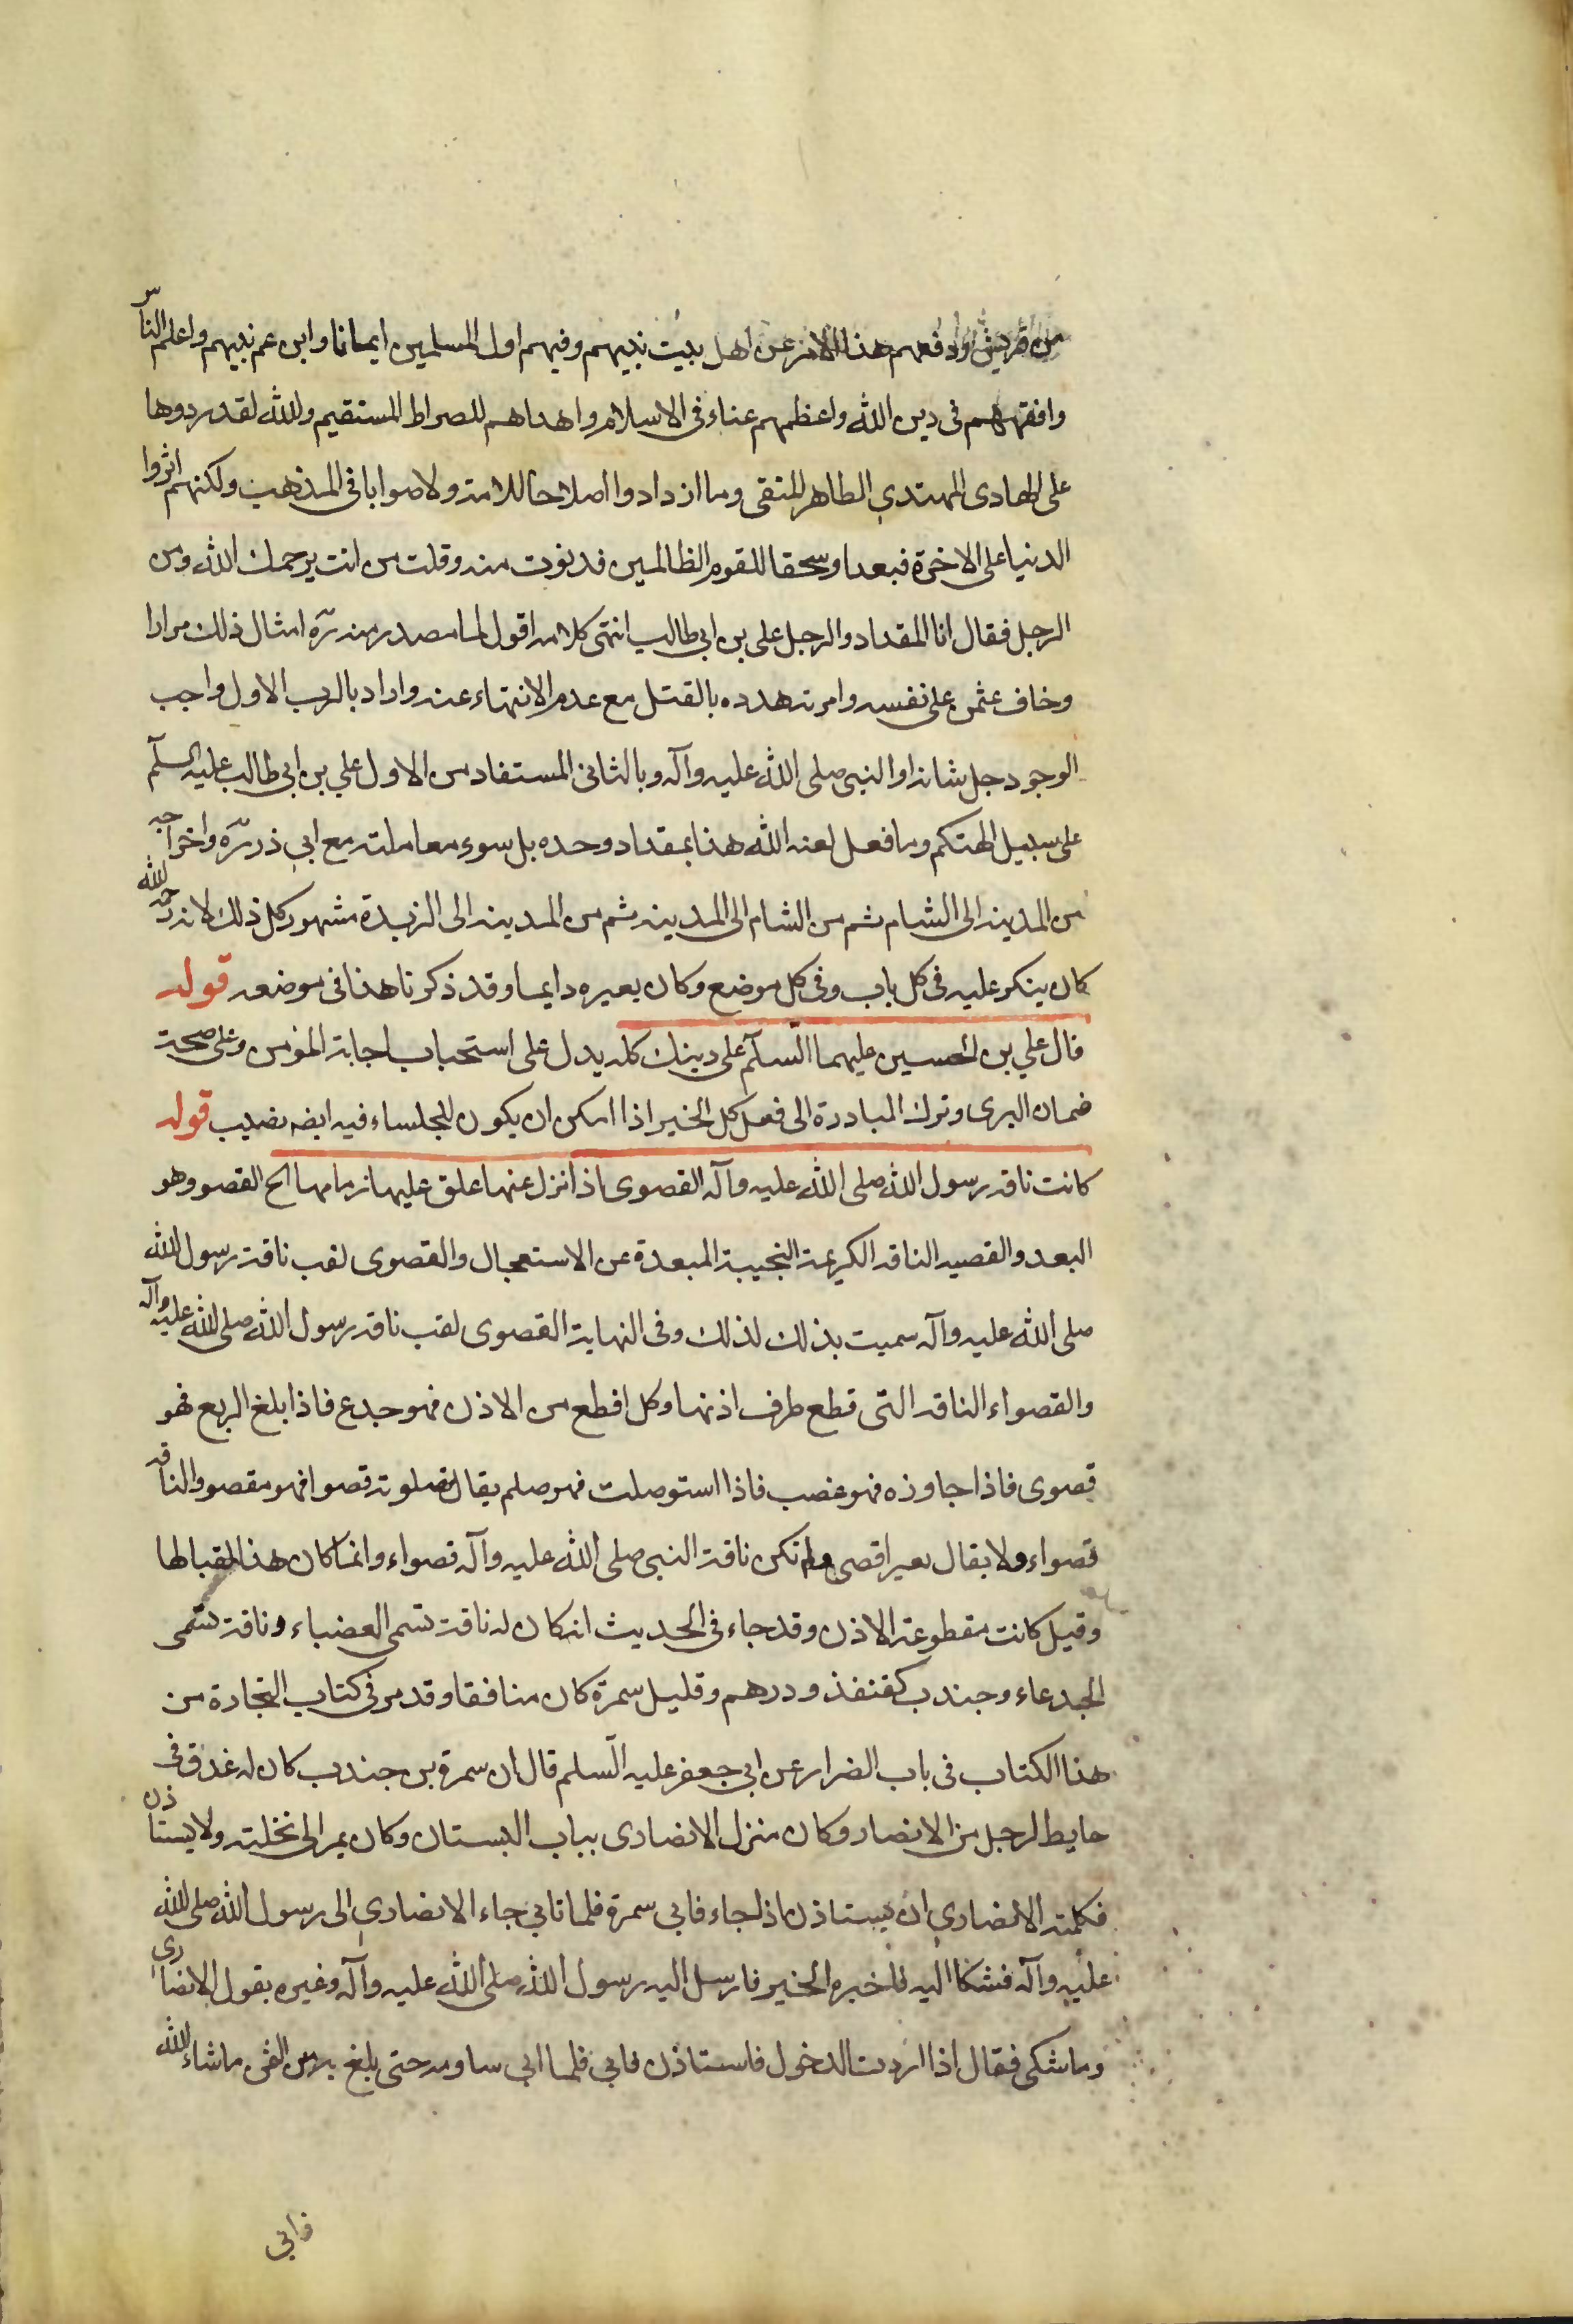 من قريش ودفعهم هذا الامر عن اهل بيت نبيهم وفيهم اول المسلمين ايمانا وابن عم نبيهم واعلم الناس
وافقههم فى دين الله واعظمهم عناء فى الاسلام واهداهم للصراط المستقيم والله لقد ردوها
على الهادى المهتدي الطاهر المتقى وما ازدادوا اصلاحا للامة ولا صوابا فى المذهب ولكنهم اثروا
الدنيا على الاخرة فبعدا وسحقا للقوم الظالمين فدنوت منه وقلت من انت يرحمك الله ومن
الرجل فقال انا المقداد والرجل على بن ابى طالب انتهى كلامه اقول لما صدر منه ره امثال ذلك مرارا
وخاف عثمن على نفسه وامرته هدده بالقتل مع عدم الانتهاء عنه واراد بالرب الاول واجب
الوجود جل شانه او النبى صلى الله عليه وآله وبالثانى المستفاد من الاول علي بن ابى طالب عليه السلم
على سبيل التهكم وما فعل لعنه الله هذا بمقداد وحده بل سوء معاملته مع ابي ذر ره واخراجه
من المدينه الى الشام ثم من الشام الى المدينه ثم من المدينه الى الزبدة مشهور كل ذلك لانه رحمه الله
كان ينكر عليه فى كل باب وفى كل موضع وكان يعيره دايما وقد ذكرنا هذا فى موضعه قوله
قال علي بن الحسين عليهما السلم على دينك كله يدل على استحباب اجابة المؤمن وعلى صحة
ضمان البرى وترك المبادرة الى فعل كل الخير اذا امكن ان يكون للجلساء فيه ايضه نصيب قوله
كانت ناقه رسول الله صلى الله عليه وآله القصوى اذا نزل عنها علق عليها زمامها الح القصو وهو
البعد والقصيه الناقه الكريمة النجيبة المبعدة عن الاستعمال والقصوى لقب ناقة رسول الله
صلى الله عليه وآله سميت بذلك لذلك وفى النهاية القصوى لقب ناقه رسول الله صلى الله عليه وآله
والقصواء الناقه التى قطع طرف اذنها وكل اقطع من الاذن فهو جدع فاذا بلغ الربع فهو
قصوى فاذا جاوزه فهو غضب فاذا استوصلت فهو صلم يقال قصوته قصوا فهو مقصو والناقه
قصواء ولا يقال بعير اقصى ولم تكن ناقة النبى صلى الله عليه وآله قصواء وانما كان هذا لقبا لها
وقيل كانت مقطوعة الاذن وقد جاء فى الحديث انه كان له ناقة تسمى العضباء وناقة تسمى
الجدعاء وجندب كقنفذ ودرهم وقليل سمرة كان منافقا وقد مر فى كتاب التجارة من
هذا الكتاب فى باب الضرار عن ابى جعفر عليه السلم قال ان سمرة بن جندب كان له غدق فى
حايط لرجل من الانصار وكان منزل الانصارى بباب البستان وكان يمر الى نخلته ولا يستاذن
فكلمه الانصاري ان يستاذن اذا جاء فابى سمرة فلما تابى جاء الانصاري الى رسول الله صلى الله
عليه وآله فشكا اليه فاخبره الخبر فارسل اليه رسول الله صلى الله عليه وآله وغيره بقول الانصارى
وما شكى فقال اذا اردت الدخول فاستاذن فابى فلما ابى ساومه حتى بلغ به من الثمن ما شاء الله
فابى